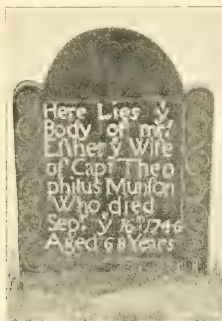 Here Lies yͤ
Body of mrs
Esther yͤ Wife
of Capt Theo
philus Munson
Who died
Sepr yͤ 16 1746
Aged 68 Years